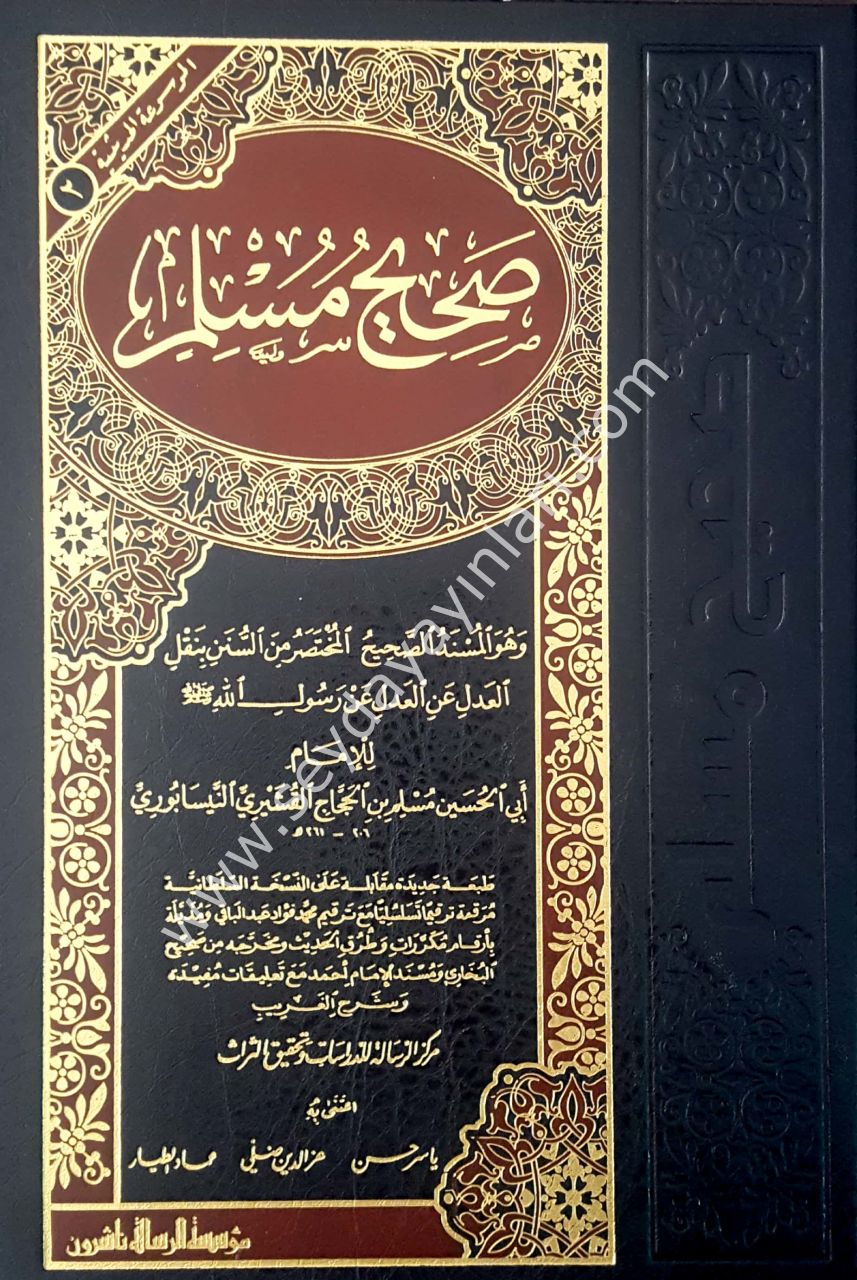 الموسوعة الحديثية
٢
صَحِيحُ مُسْلِمٍ
وَهُوَ المُسْنَدُ الصَّحِيحُ المُخْتَصَرُ مِنَ السُّنَنِ بِنَقْلِ
العَدْلِ عَنِ العَدْلِ عَنْ رَسُولِ اللهِ ﷺ
لِلإِمَامِ
أَبِي الحُسَيْنِ مُسْلِمِ بنِ الحَجَّاجِ القُشَيْرِيِّ النَّيْسَابُورِيِّ
٢٠٦ - ٢٦١ هـ
طبعة جديدة مقابلة على النسخة السلطانية
مرقمة ترقيمًا تسلسليًا مع ترقيم محمد فؤاد عبد الباقي ومذيلة
بأرقام مكررات وطرق الحديث ومخرجه من صحيح
البخاري ومسند الإمام أحمد مع تعليقات مفيدة
وشرح الغريب
مركز الرسالة للدراسات وتحقيق التراث
اعتنى به
ياسر حسن عز الدين ضلي عماد الطيار
مؤسسة الرسالة ناشرون
صحيح مسلم
www.seydayayinlari.com